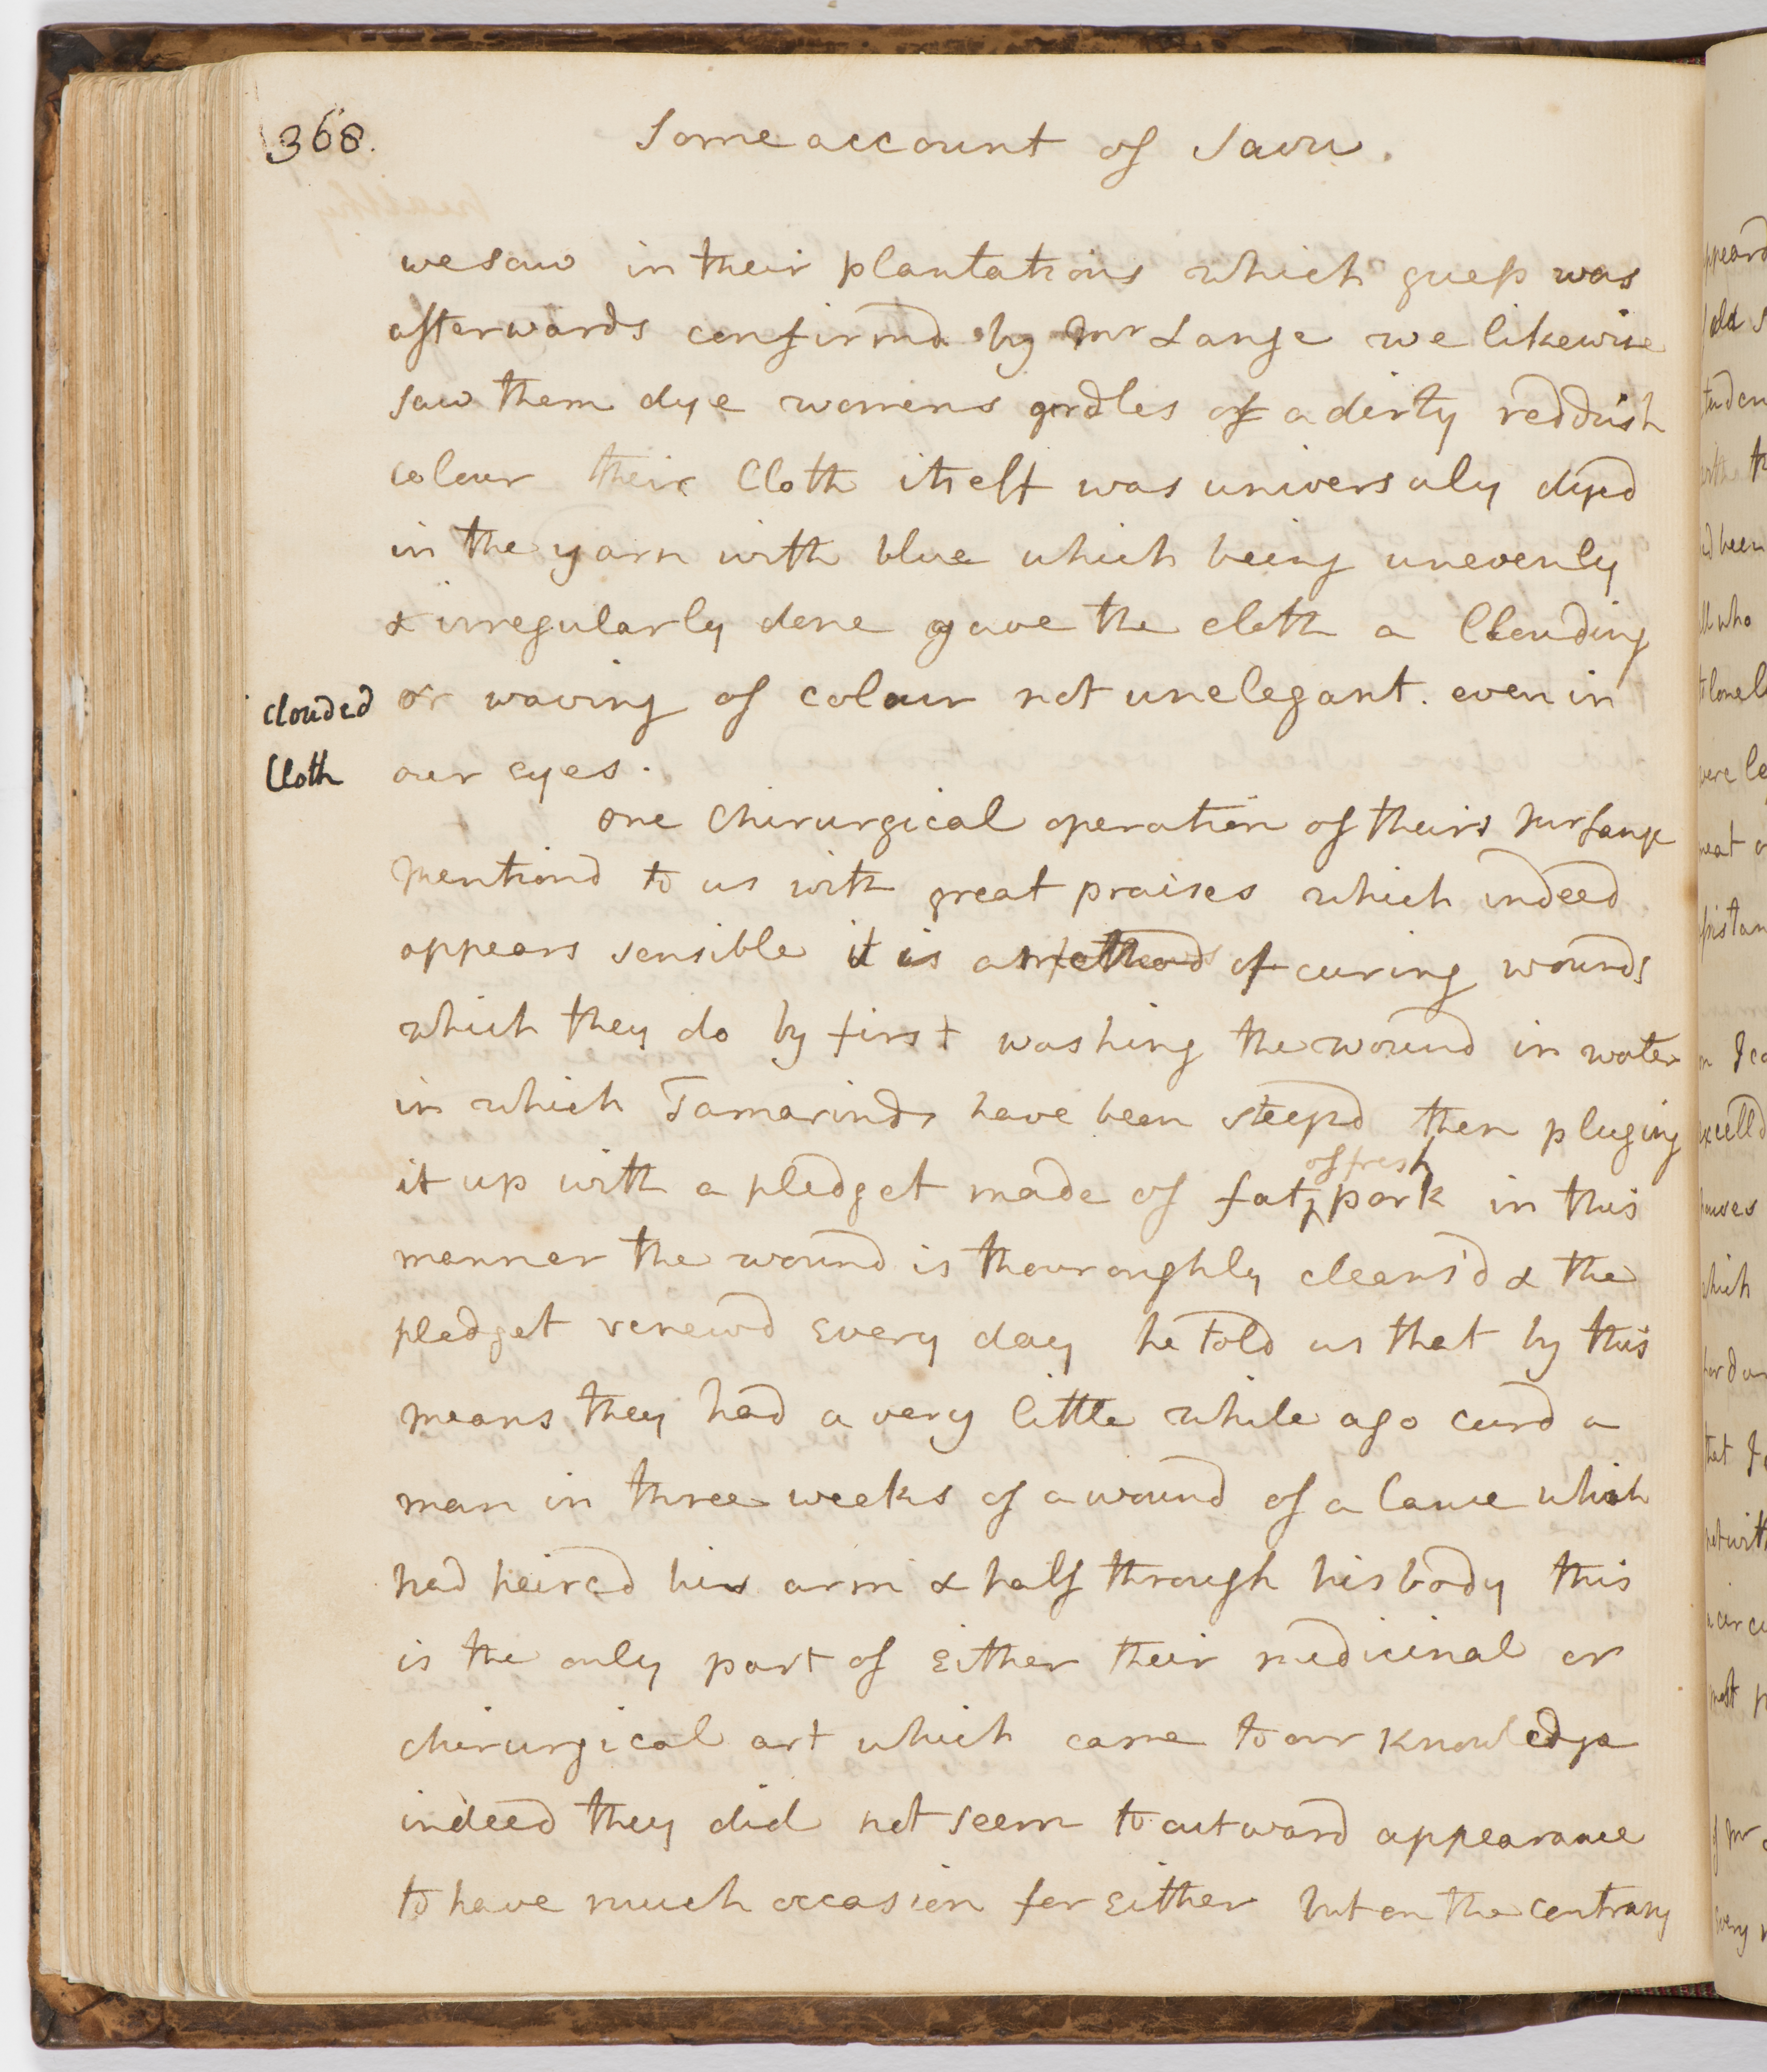 368.
Some account of Savu.
we saw in their plantations which guess was
afterwards confirmd by Mr Lange we likewise
saw them dye womens girdles of a dirty reddish
colour their Cloth itself was universaly dyed
in the yarn with blue which being unevenly
& irregularly done gave the cloth a Clouding
or waving of colour not unelegant. even in
clouded
Cloth
our eyes.
one Chirurgical operation of theirs Mr Lange
mentiond to us with great praises which indeed
appears sensible it is a method of curing wounds
which they do by first washing the wound in water
in which Tamarinds have been steepd then pluging
of fresh
it up with a pledget made of fat pork in this
manner the wound is thouroughly cleans'd & the
pledget renewd every day he told us that by this
means they had a very little while ago curd a
man in three weeks of a wound of a lance which
had peircd his arm & half through his body this
is the only part of either their medicinal or
chirurgical art which came to our knowledge
indeed they did not seem to outward appearance
to have much occasion for either but on the contrary